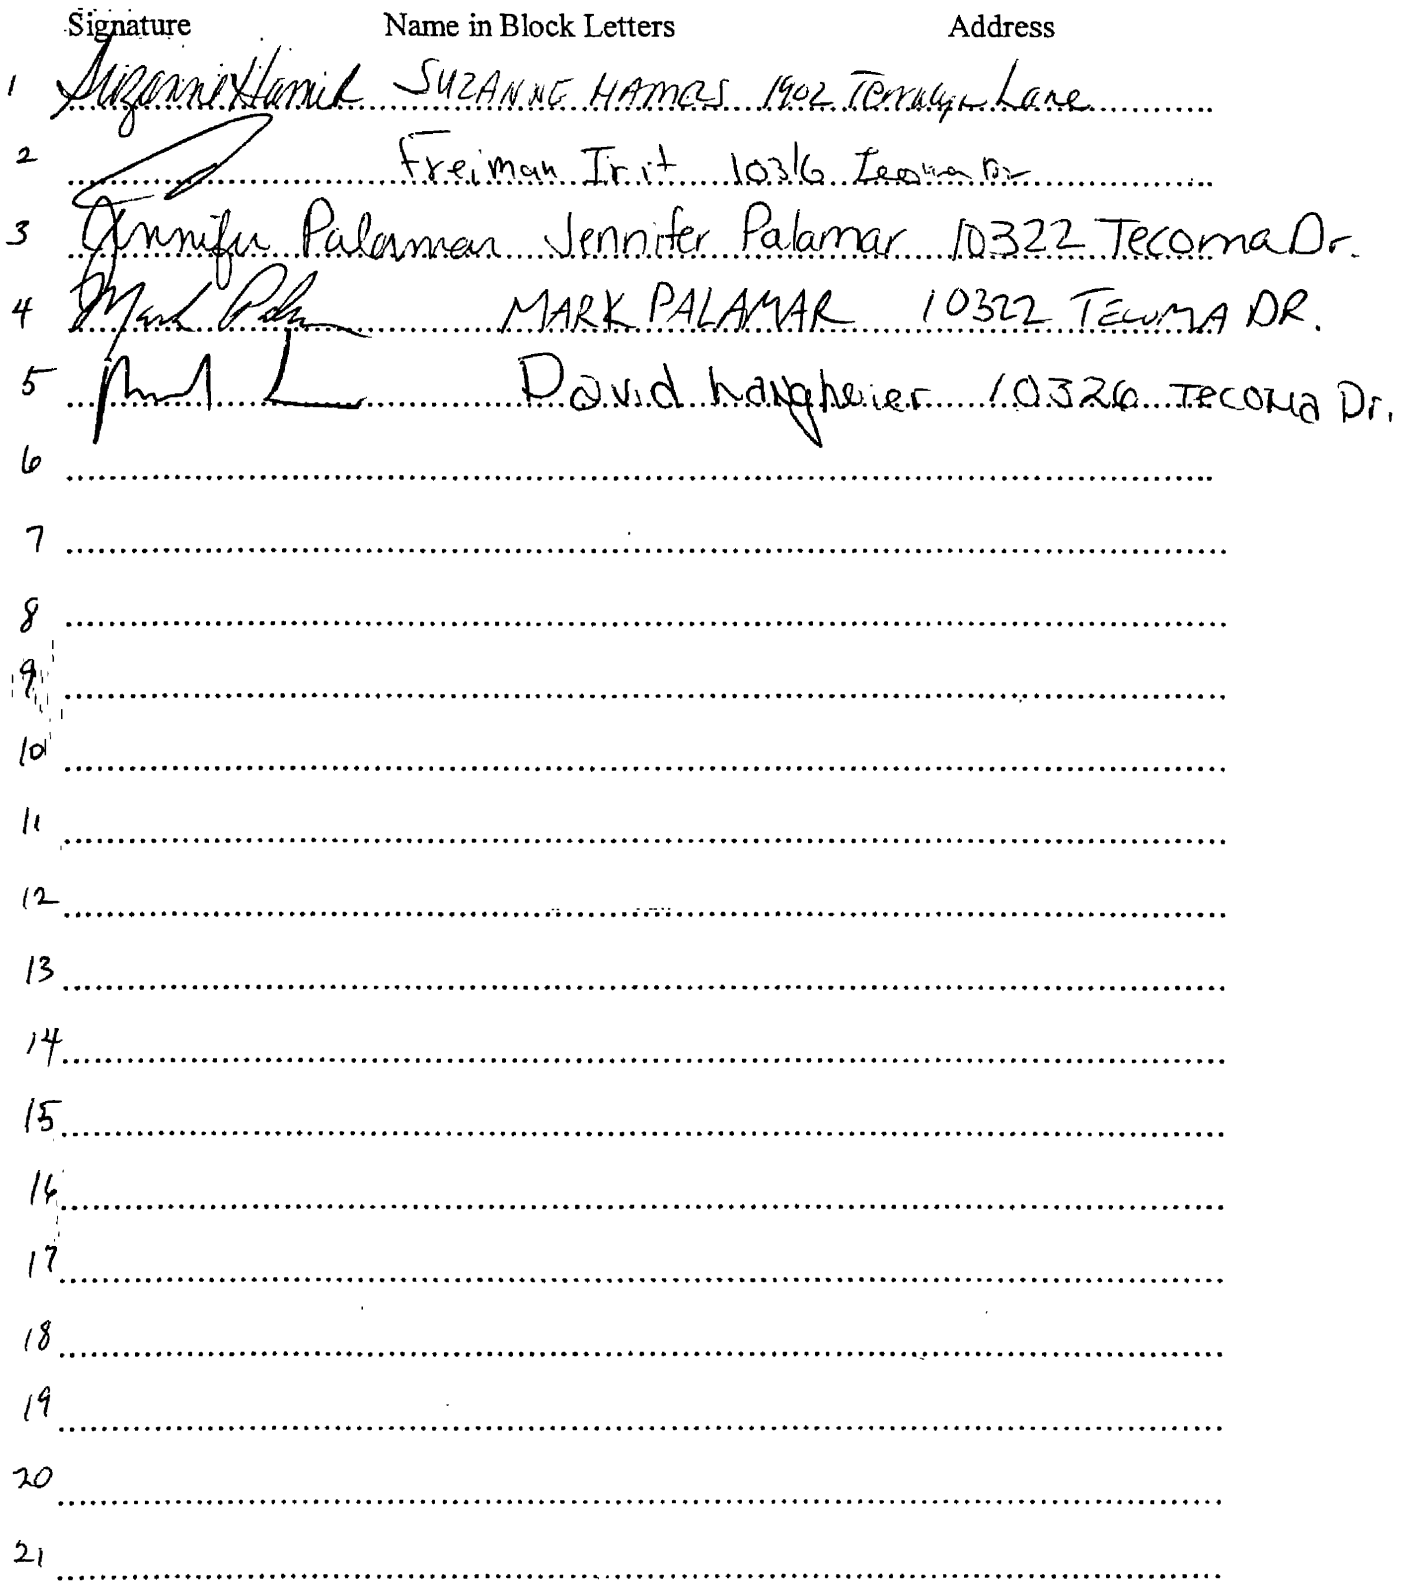 Signature Name in Block Letters Address
1 Suzanne SUZANNE HAMES 1902 Lane
2 Freiman Irit 10316 Dr
3 Jennifer Palamar Jennifer Palamar 10322 Tecoma Dr.
4 Mark MARK PALAMAR 10322 TECOMA DR.
5 David 10326 TECOMA Dr.
6
7
8
9
10
11
12
13
14
15
16
17
18
19
20
21